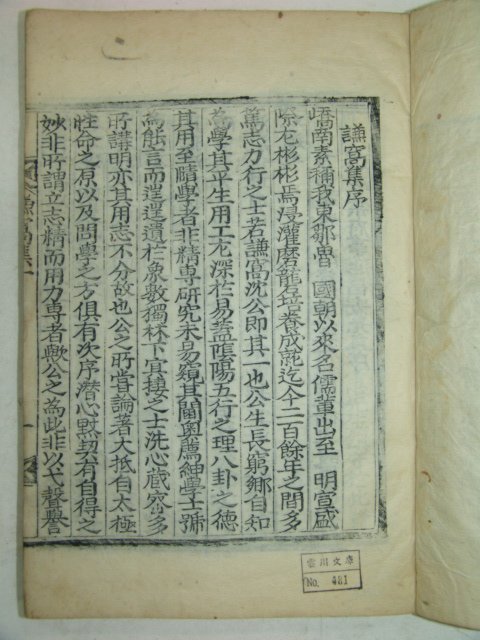 謙窩集序
嶠南素稱我東鄒魯 國朝以來名儒輩出至 明宣盛
際尤彬彬焉浸灌磨礲培養成就迄今二百餘年之間多
篤志力行之士若謙窩沈公即其一也公生長窮鄉自知
爲學其平生用工尤深於易蓋陰陽五行之理八卦之德
其用至賾學者非精專研究未易窺其閫奧薦紳學士號
爲能言而遑遑遺於象數獨林下宜棲之士洗心藏密多
所講明亦其用志不分故也公之所嘗論者大抵自太極
性命之原以及問學之方俱有次序潛心默契有自得之
妙非所謂立志精而用力專者歟公之爲此非以弋聲譽
謙窩集
一
雲川文庫
No. 481